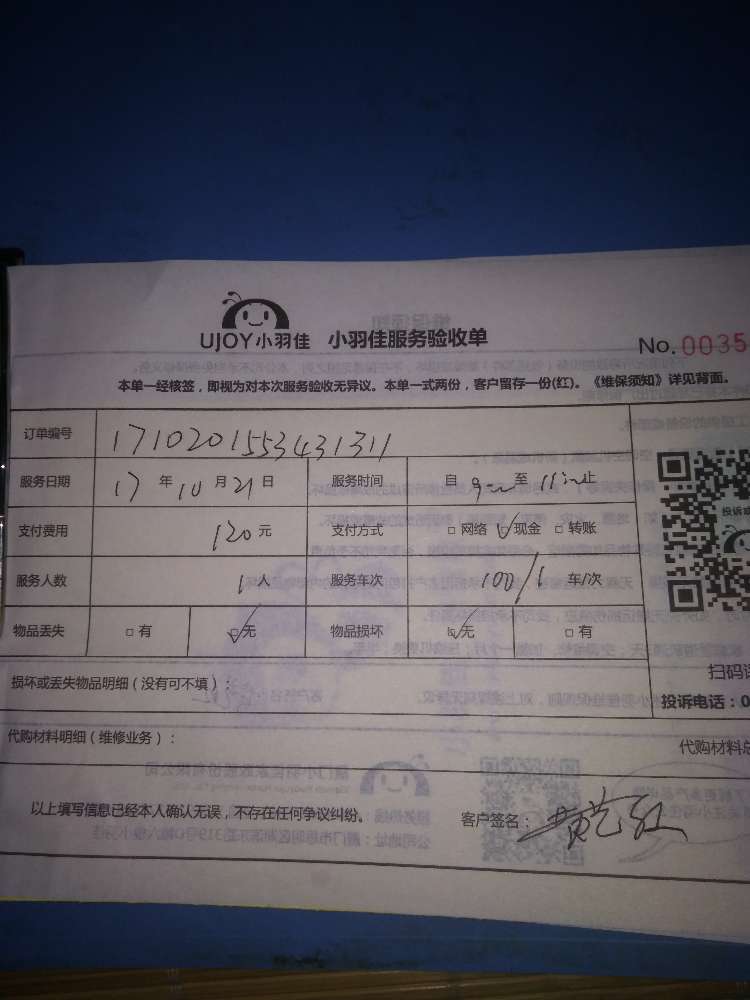 UJOY小羽佳 小羽佳服务验收单
No. 0035
本单一经核签，即视为对本次服务验收无异议。本单一式两份，客户留存一份(红)。《维保须知》详见背面。
订单编号 1710201553431311
服务日期 17 年 10 月 21 日 服务时间 自 至 止
支付费用 120 元 支付方式 □ 网络 ☑ 现金 □ 转账
服务人数 1 人 服务车次 100/1 车/次
物品丢失 □ 有 ☑ 无 物品损坏 ☑ 无 □ 有
投诉
损坏或丢失物品明细（没有可不填）：
扫码
投诉电话：0
代购材料明细（维修业务）： 代购材料总
以上填写信息已经本人确认无误，不存在任何争议纠纷。 客户签名：黄艺红